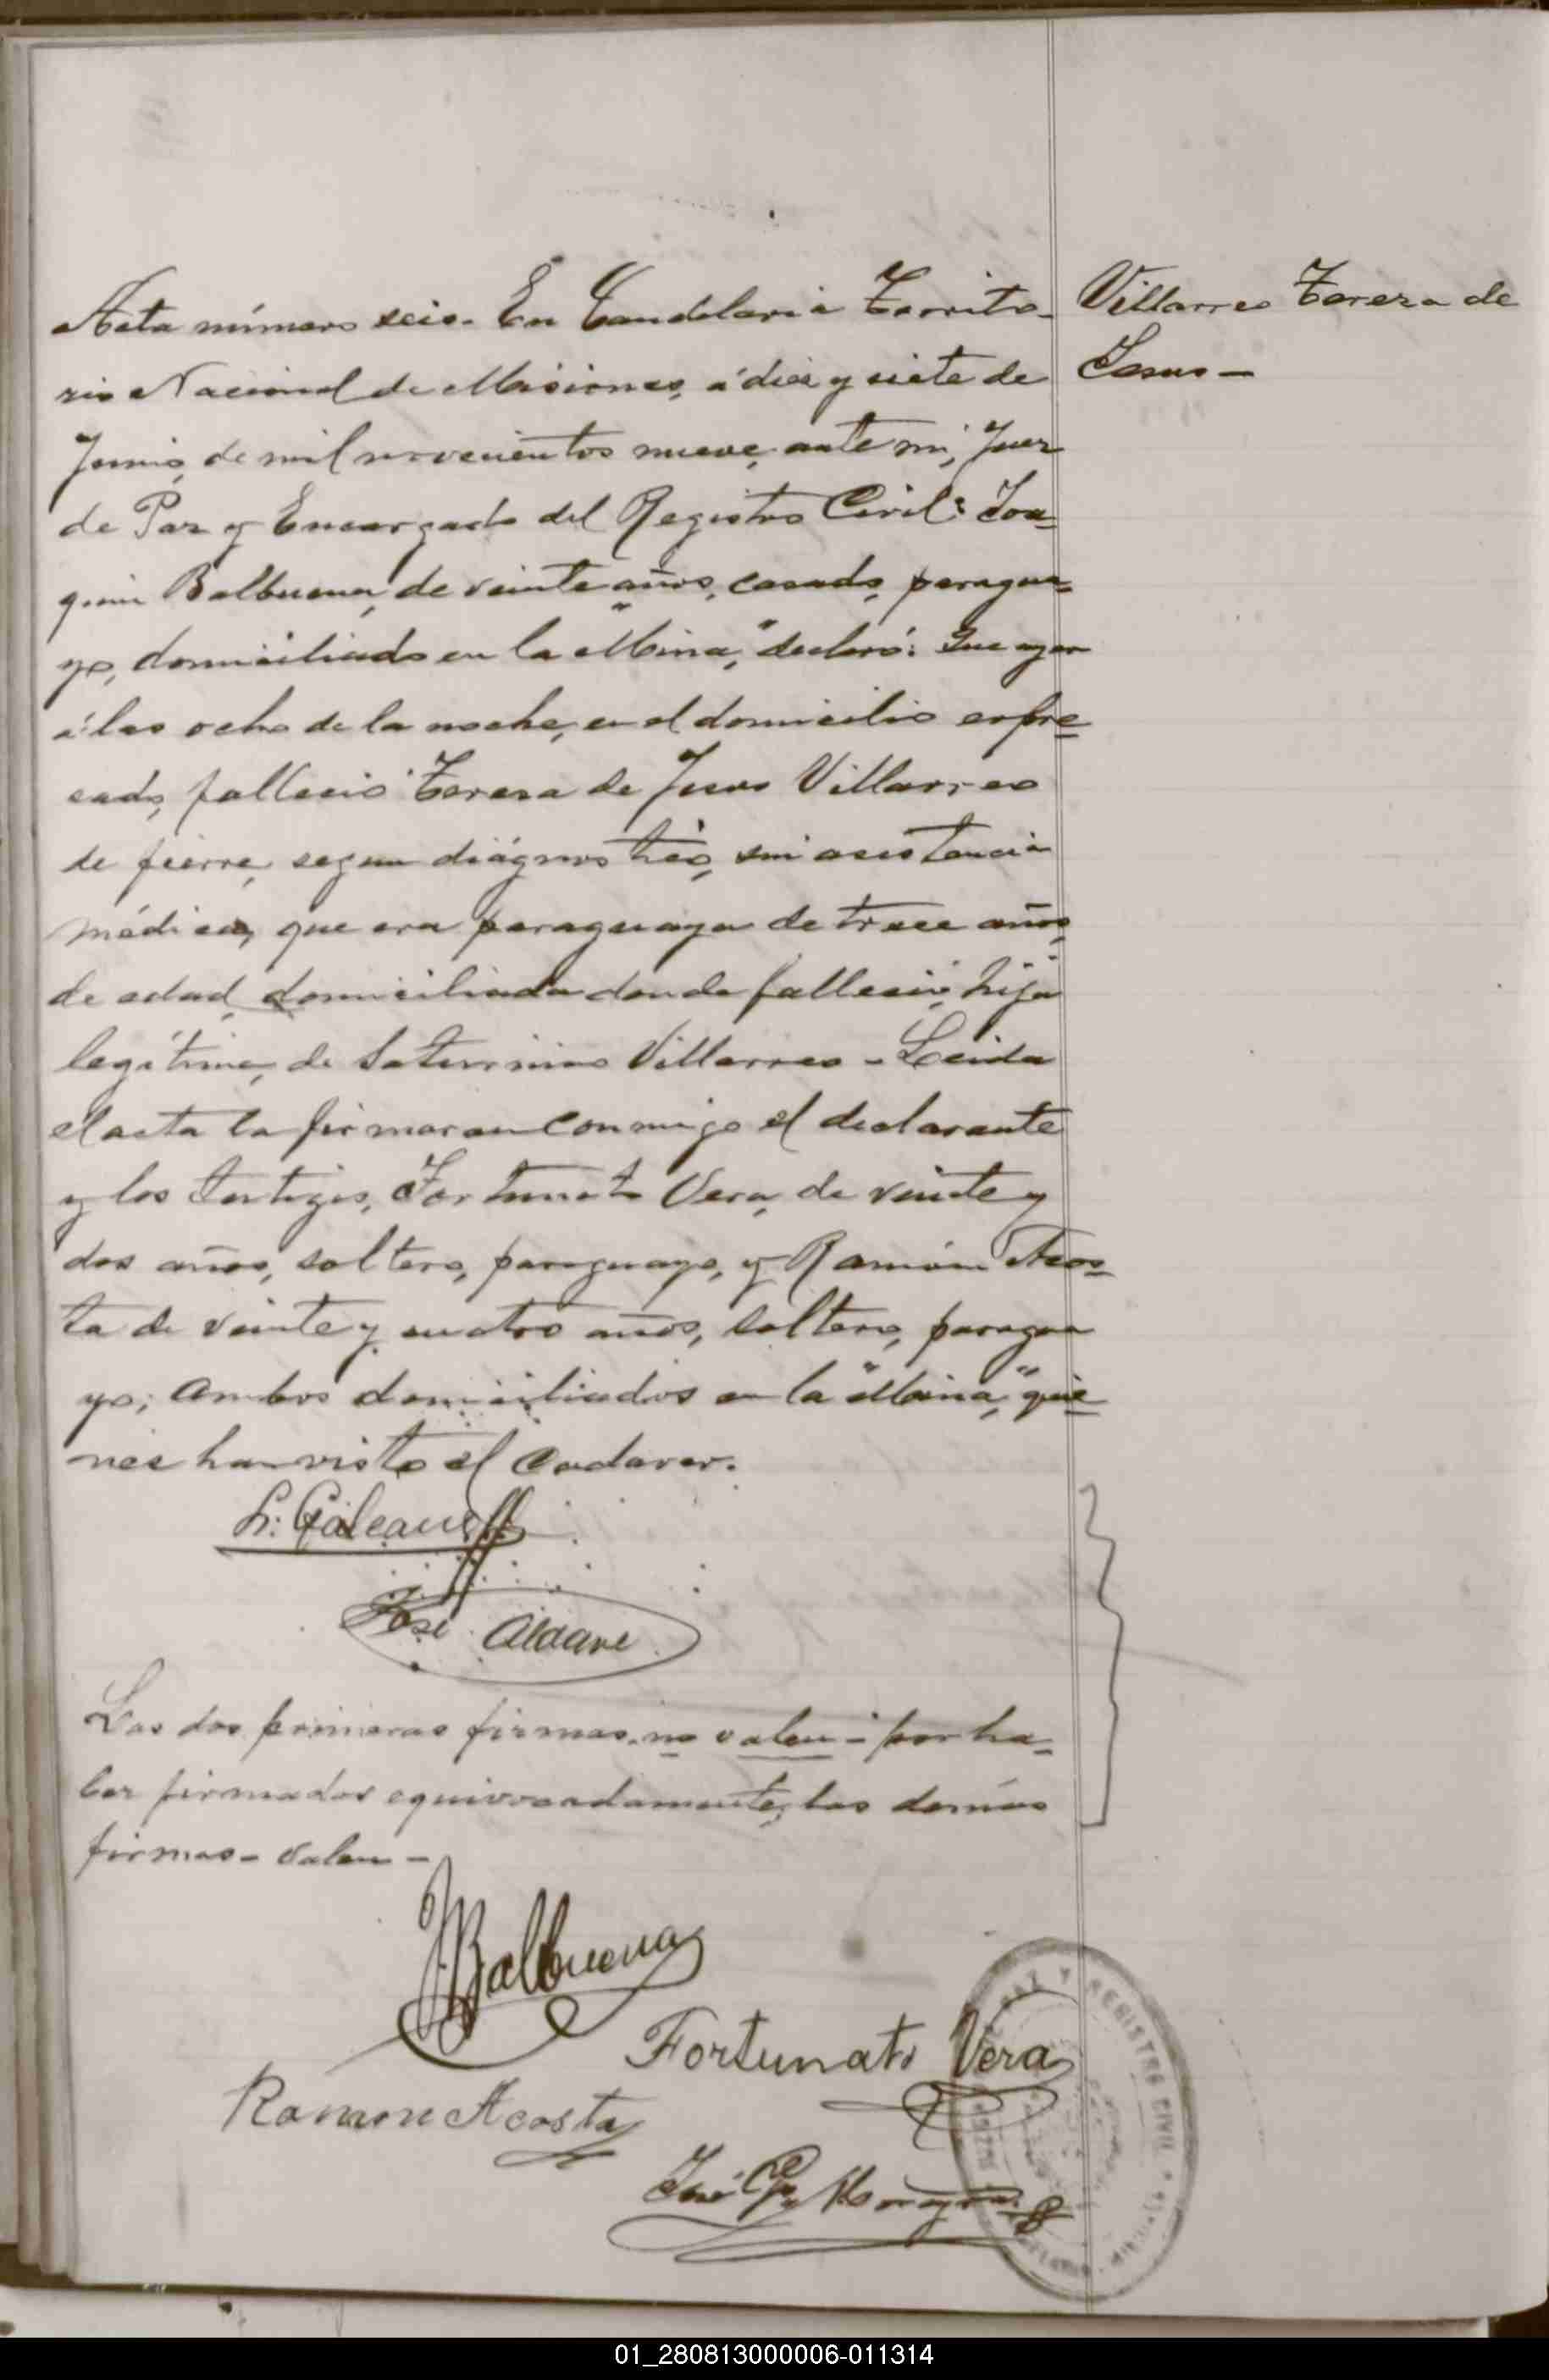 Acta número seis. En Candelaria Territo-
rio Nacional de Misiones, á diez y siete de
Junio, de mil novecientos nueve, ante mi, Juez
de Paz y Encargado del Registro Civil: Joa-
quin Balbuena, de veinte años, casado, paragua-
yo, domiciliado en la "Mina," declaró: Que ayer
á las ocho de la noche, en el domicilio expre-
sado, falleció Teresa de Jesus Villarreo
de fierre, segun diágnostico, sin asistencia
médica, que era paraguaya de trece años,
de edad, domiciliada donde falleció, hija
legítima, de Saturnino Villarreo - Leida
el acta la firmaron conmigo el declarante
y los testigos, Fortunato Vera, de veinte y
dos años, soltero, paraguayo, y Ramón Acos-
ta de veinte y cuatro años, soltero, paragua
yo; ambos domiciliados en la "Mina," quie-
nes han visto el cadaver.
Villarreo Teresa de
Jesus -
L. Galeano
José Aldave
Las dos primeras firmas, no valen - por ha-
ber firmados equivocadamente, las demás
firmas - valen -
J Balbuena
Fortunato Vera
Ramon Acosta
José
REGISTRO CIVIL
01_280813000006-011314